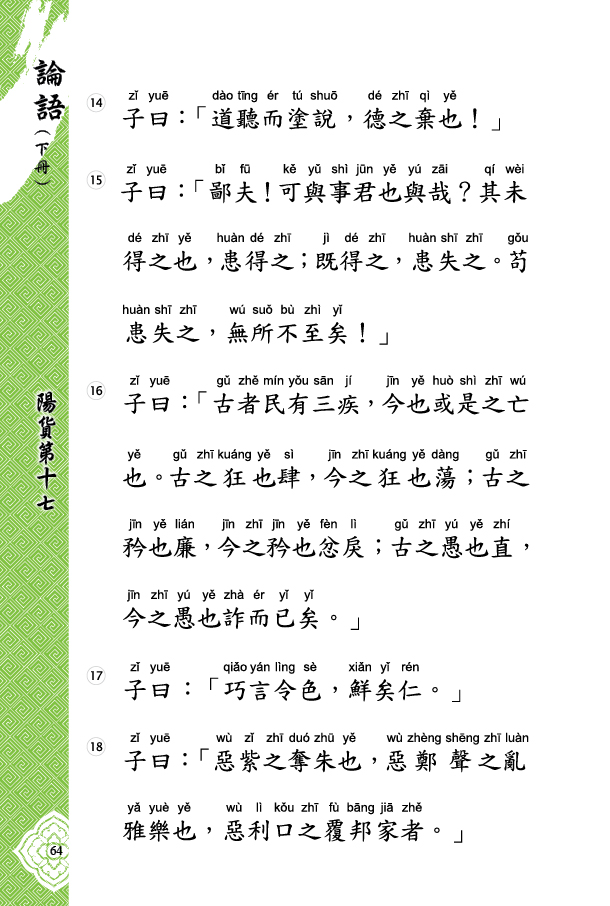 論語
(下冊)
陽貨第十七
64
zǐ yuē dào tīng ér tú shuō dé zhī qì yě
14 子曰：「道聽而塗說，德之棄也！」
zǐ yuē bǐ fū kě yǔ shì jūn yě yú zāi qí wèi
15 子曰：「鄙夫！可與事君也與哉？其未
dé zhī yě huàn dé zhī jì dé zhī huàn shī zhī gǒu
得之也，患得之；既得之，患失之。苟
huàn shī zhī wú suǒ bù zhì yǐ
患失之，無所不至矣！」
zǐ yuē gǔ zhě mín yǒu sān jí jīn yě huò shì zhī wú
16 子曰：「古者民有三疾，今也或是之亡
yě gǔ zhī kuáng yě sì jīn zhī kuáng yě dàng gǔ zhī
也。古之狂也肆，今之狂也蕩；古之
jīn yě lián jīn zhī jīn yě fèn lì gǔ zhī yú yě zhí
矜也廉，今之矜也忿戾；古之愚也直，
jīn zhī yú yě zhà ér yǐ yǐ
今之愚也詐而已矣。」
zǐ yuē qiǎo yán lìng sè xiǎn yǐ rén
17 子曰：「巧言令色，鮮矣仁。」
zǐ yuē wù zǐ zhī duó zhū yě wù zhèng shēng zhī luàn
18 子曰：「惡紫之奪朱也，惡鄭聲之亂
yǎ yuè yě wù lì kǒu zhī fù bāng jiā zhě
雅樂也，惡利口之覆邦家者。」